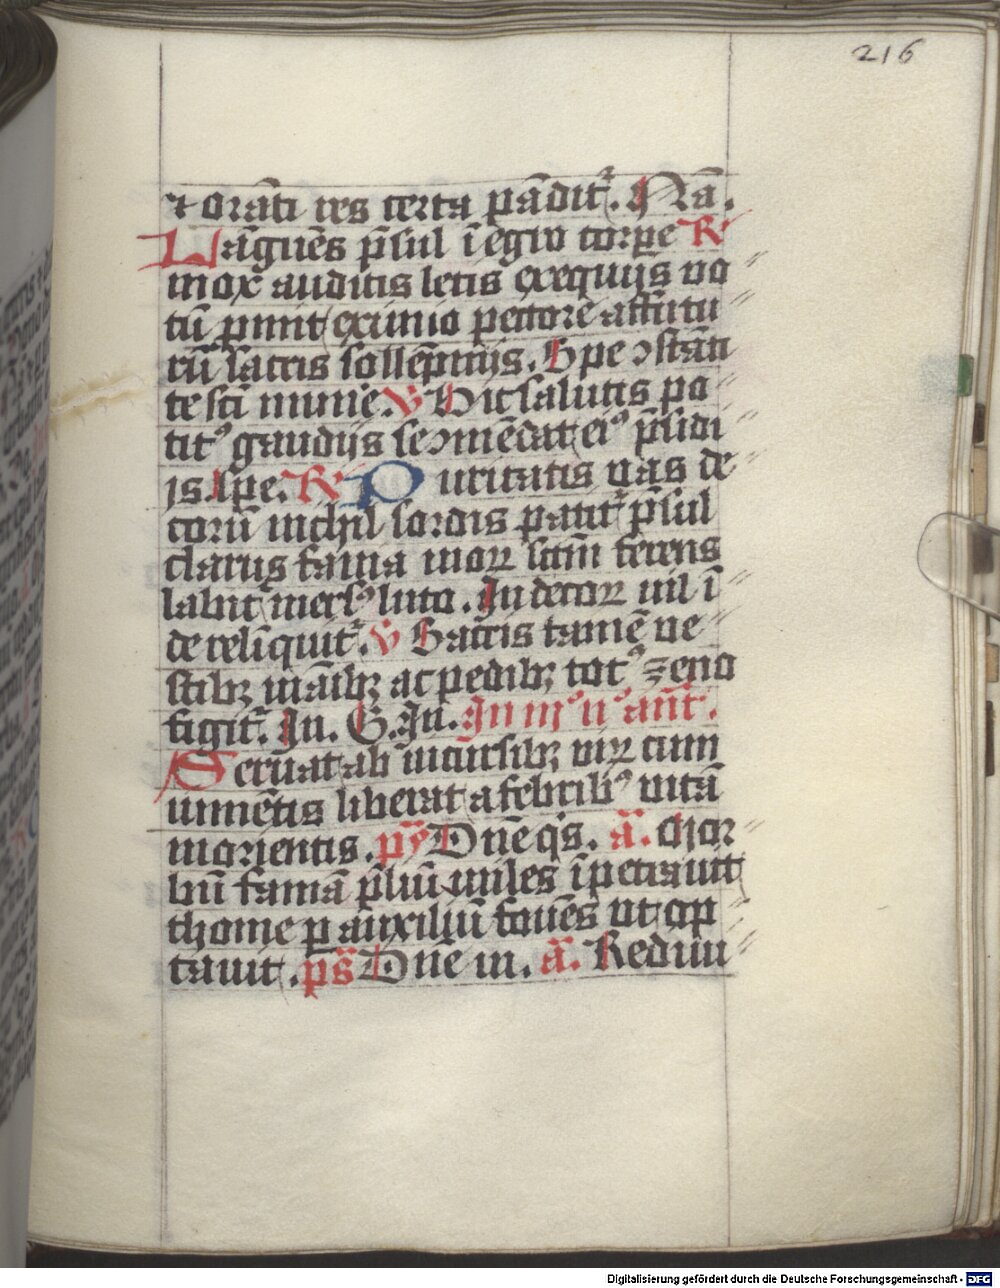 216
⁊ orāti res certa pādit᷑. Nā.
Lāguēs p̄sul ī egro corꝑe R
mox auditis letis exequijs vo
tū ꝓmit eximio pectore affutu
rū sacris sollēpnijs. Spe ↄstāti
te sci munie. V Hic salutis po
titꝰ gaudijs se ↄmēdat eiꝰ p̄sidi
js. spe. R Puritatis vas de
corū nichil sordis patit᷑ p̄sul
clarus fama moꝝ sctm̄ ferens
labit mersꝰ luto. In decoꝝ nil ī
de relīquit᷑. V Sacris tamē ve
stibꝫ māibꝫ ac pedibꝫ totꝰ zeno
figit᷑. In. G. In. In iijꝰ nꝰ ant̄.
Seruat ab incursibꝫ viꝝ cum
iumētis liberat a febribꝰ vitā
morientis. ps Dn̄e qs. a. chor
bū famā p̄liū miles īpetrauit
thome ꝑ auxiliū fouēs vt op
tauit. ps Dn̄e in. a. Rediui
Digitalisierung gefördert durch die Deutsche Forschungsgemeinschaft - DFG